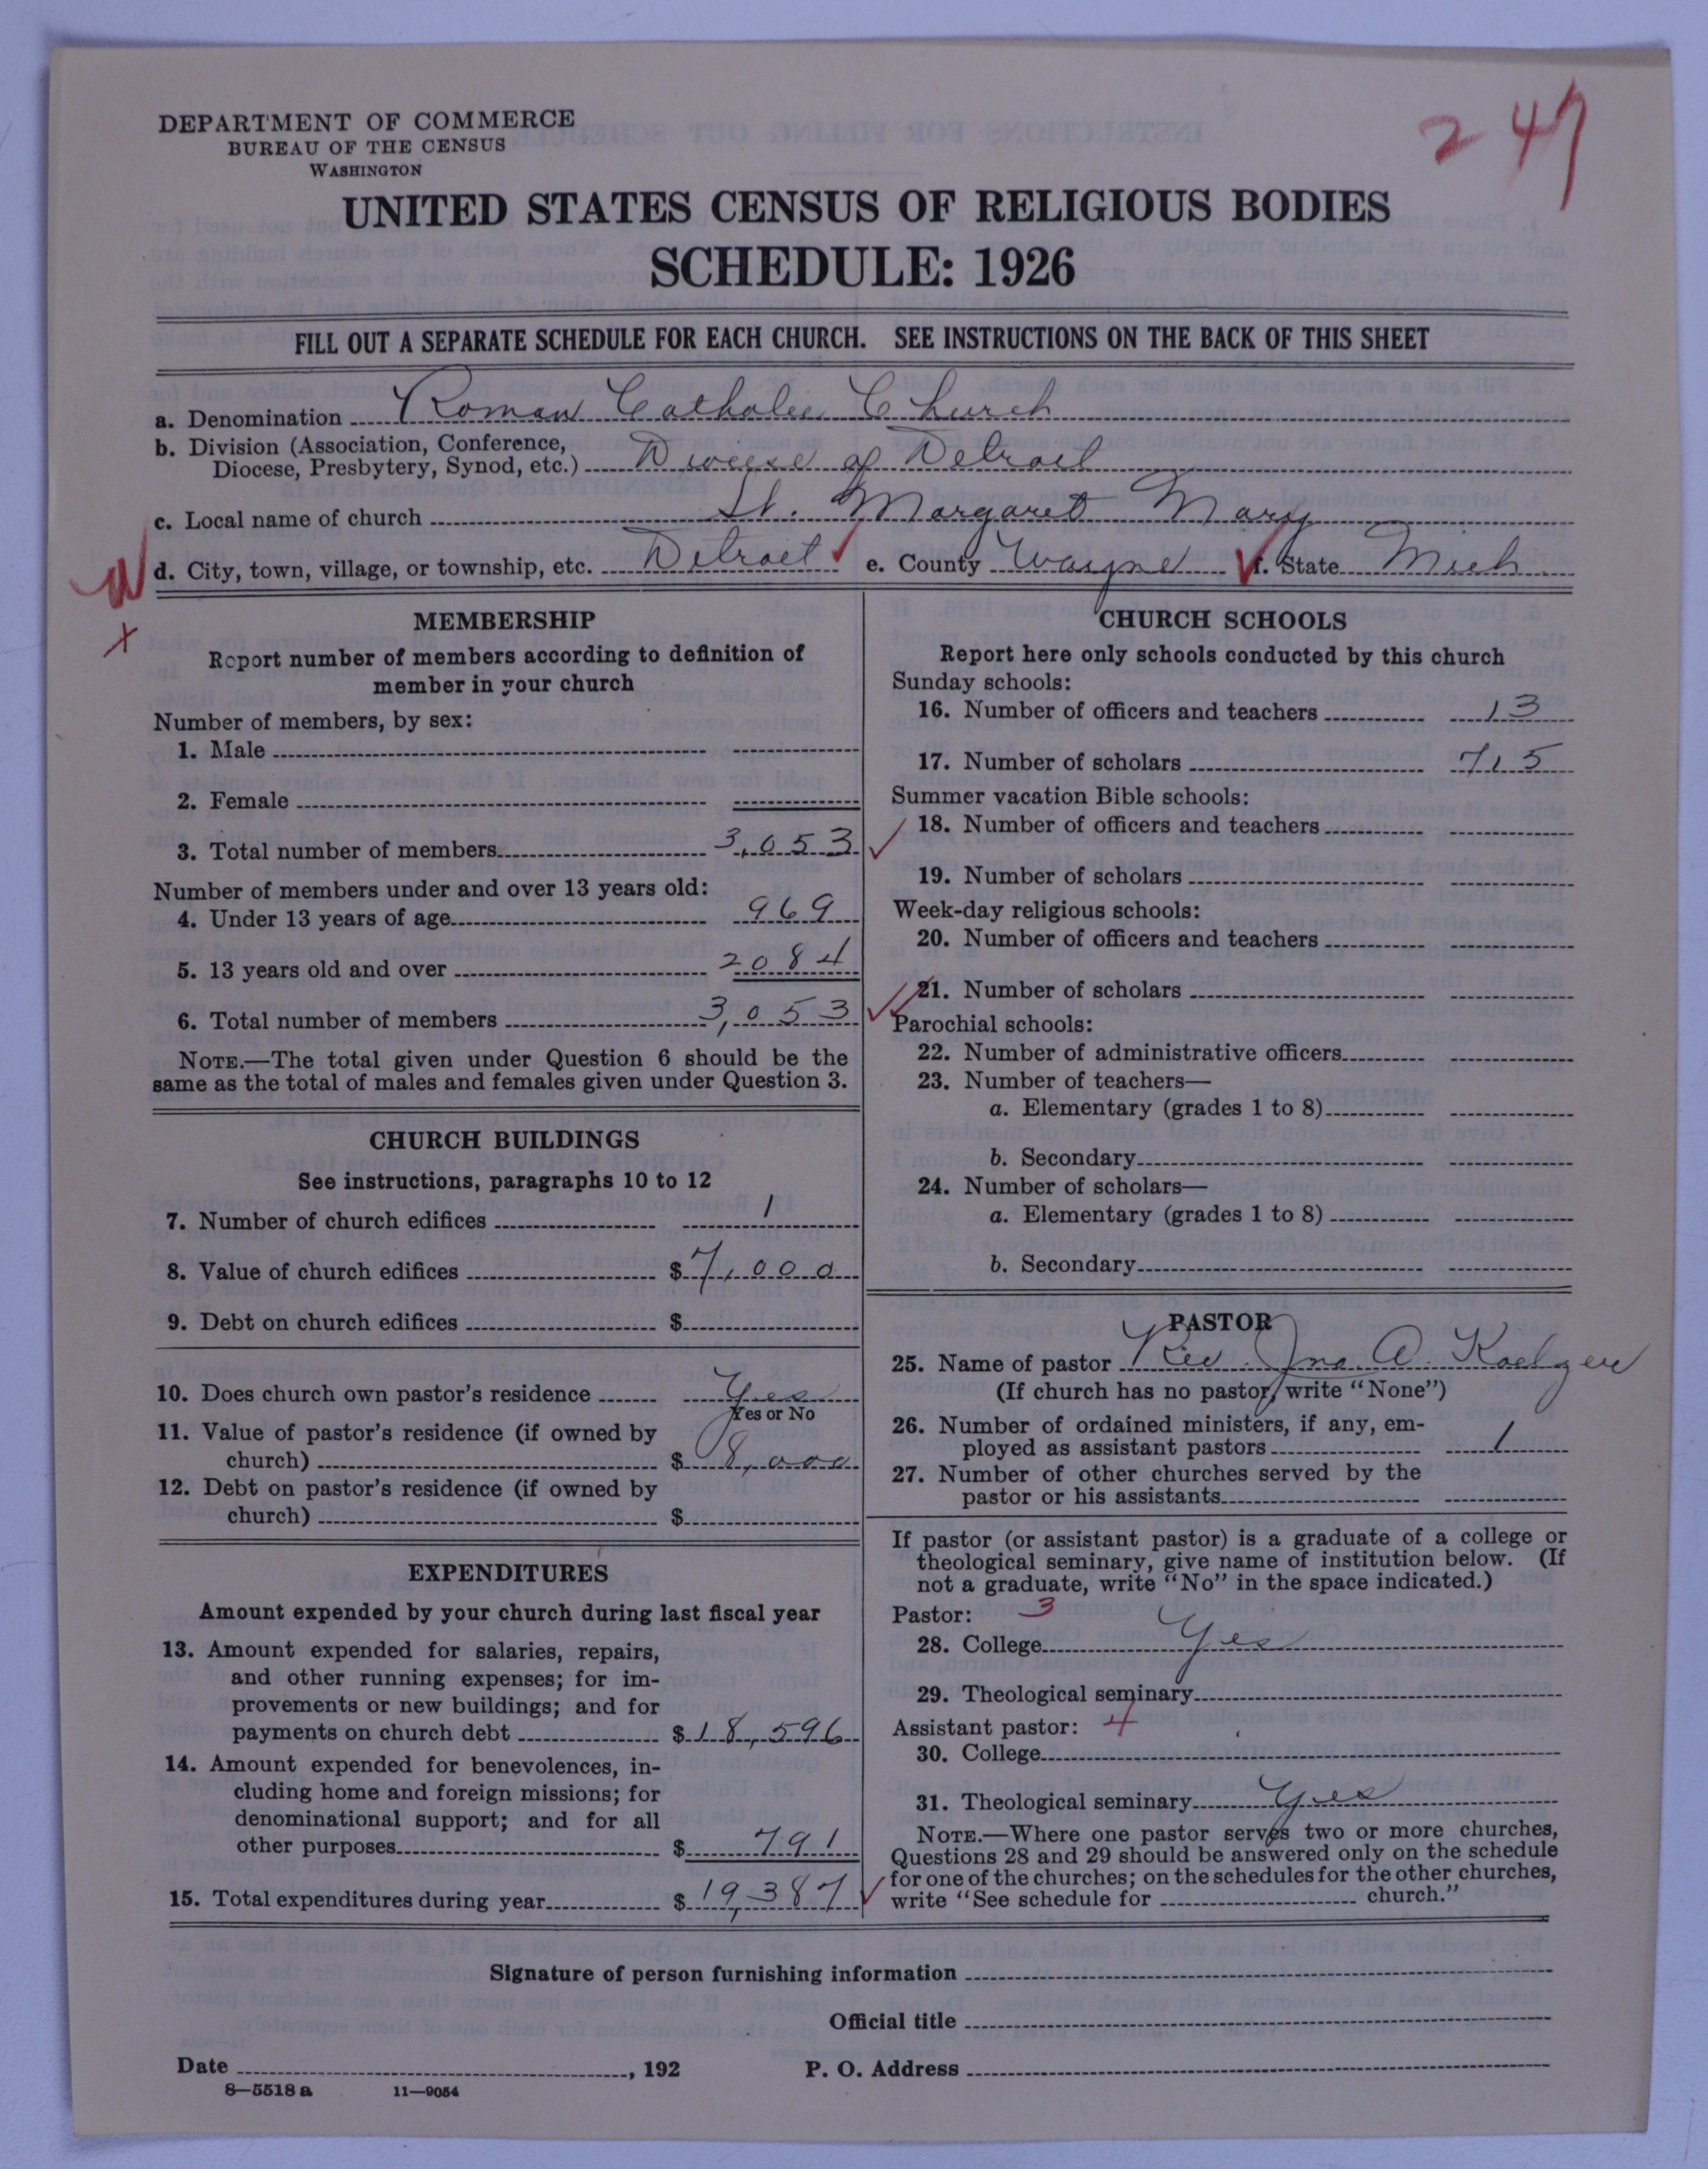 247
DEPARTMENT OF COMMERCE
BUREAU OF THE CENSUS
WASHINGTON
UNITED STATES CENSUS OF RELIGIOUS BODIES
SCHEDULE: 1926
FILL OUT A SEPARATE SCHEDULE FOR EACH CHURCH. SEE INSTRUCTIONS ON THE BACK OF THIS SHEET
a. Denomination Roman Catholic Church
b. Division (Association, Conference,
Diocese, Presbytery, Synod, etc.) Diocese of Detroit
c. Local name of church St. Margaret Mary
d. City, town, village, or township, etc. Detroit e. County Wayne f. State Mich
MEMBERSHIP
Report number of members according to definition of
member in your church
Number of members, by sex:
1. Male
2. Female
3. Total number of members 3,053
Number of members under and over 13 years old:
4. Under 13 years of age 969
5. 13 years old and over 2084
6. Total number of members 3,053
NOTE.—The total given under Question 6 should be the
same as the total of males and females given under Question 3.
CHURCH BUILDINGS
See instructions, paragraphs 10 to 12
7. Number of church edifices 1
8. Value of church edifices $7,000
9. Debt on church edifices $
10. Does church own pastor's residence Yes
Yes or No
11. Value of pastor's residence (if owned by
church) $8,000
12. Debt on pastor's residence (if owned by
church) $
EXPENDITURES
Amount expended by your church during last fiscal year
13. Amount expended for salaries, repairs,
and other running expenses; for im-
provements or new buildings; and for
payments on church debt $18,596
14. Amount expended for benevolences, in-
cluding home and foreign missions; for
denominational support; and for all
other purposes $791
15. Total expenditures during year $19,387
CHURCH SCHOOLS
Report here only schools conducted by this church
Sunday schools:
16. Number of officers and teachers 13
17. Number of scholars 715
Summer vacation Bible schools:
18. Number of officers and teachers
19. Number of scholars
Week-day religious schools:
20. Number of officers and teachers
21. Number of scholars
Parochial schools:
22. Number of administrative officers
23. Number of teachers—
a. Elementary (grades 1 to 8)
b. Secondary
24. Number of scholars—
a. Elementary (grades 1 to 8)
b. Secondary
PASTOR
25. Name of pastor Rev. Jno. A. Koelzer
(If church has no pastor, write "None")
26. Number of ordained ministers, if any, em-
ployed as assistant pastors 1
27. Number of other churches served by the
pastor or his assistants
If pastor (or assistant pastor) is a graduate of a college or
theological seminary, give name of institution below. (If
not a graduate, write "No" in the space indicated.)
Pastor: 3
28. College Yes
29. Theological seminary
Assistant pastor: 4
30. College
31. Theological seminary Yes
NOTE.—Where one pastor serves two or more churches,
Questions 28 and 29 should be answered only on the schedule
for one of the churches; on the schedules for the other churches,
write "See schedule for church."
Signature of person furnishing information
Official title
Date , 192 P. O. Address
8—5518 a 11—9054